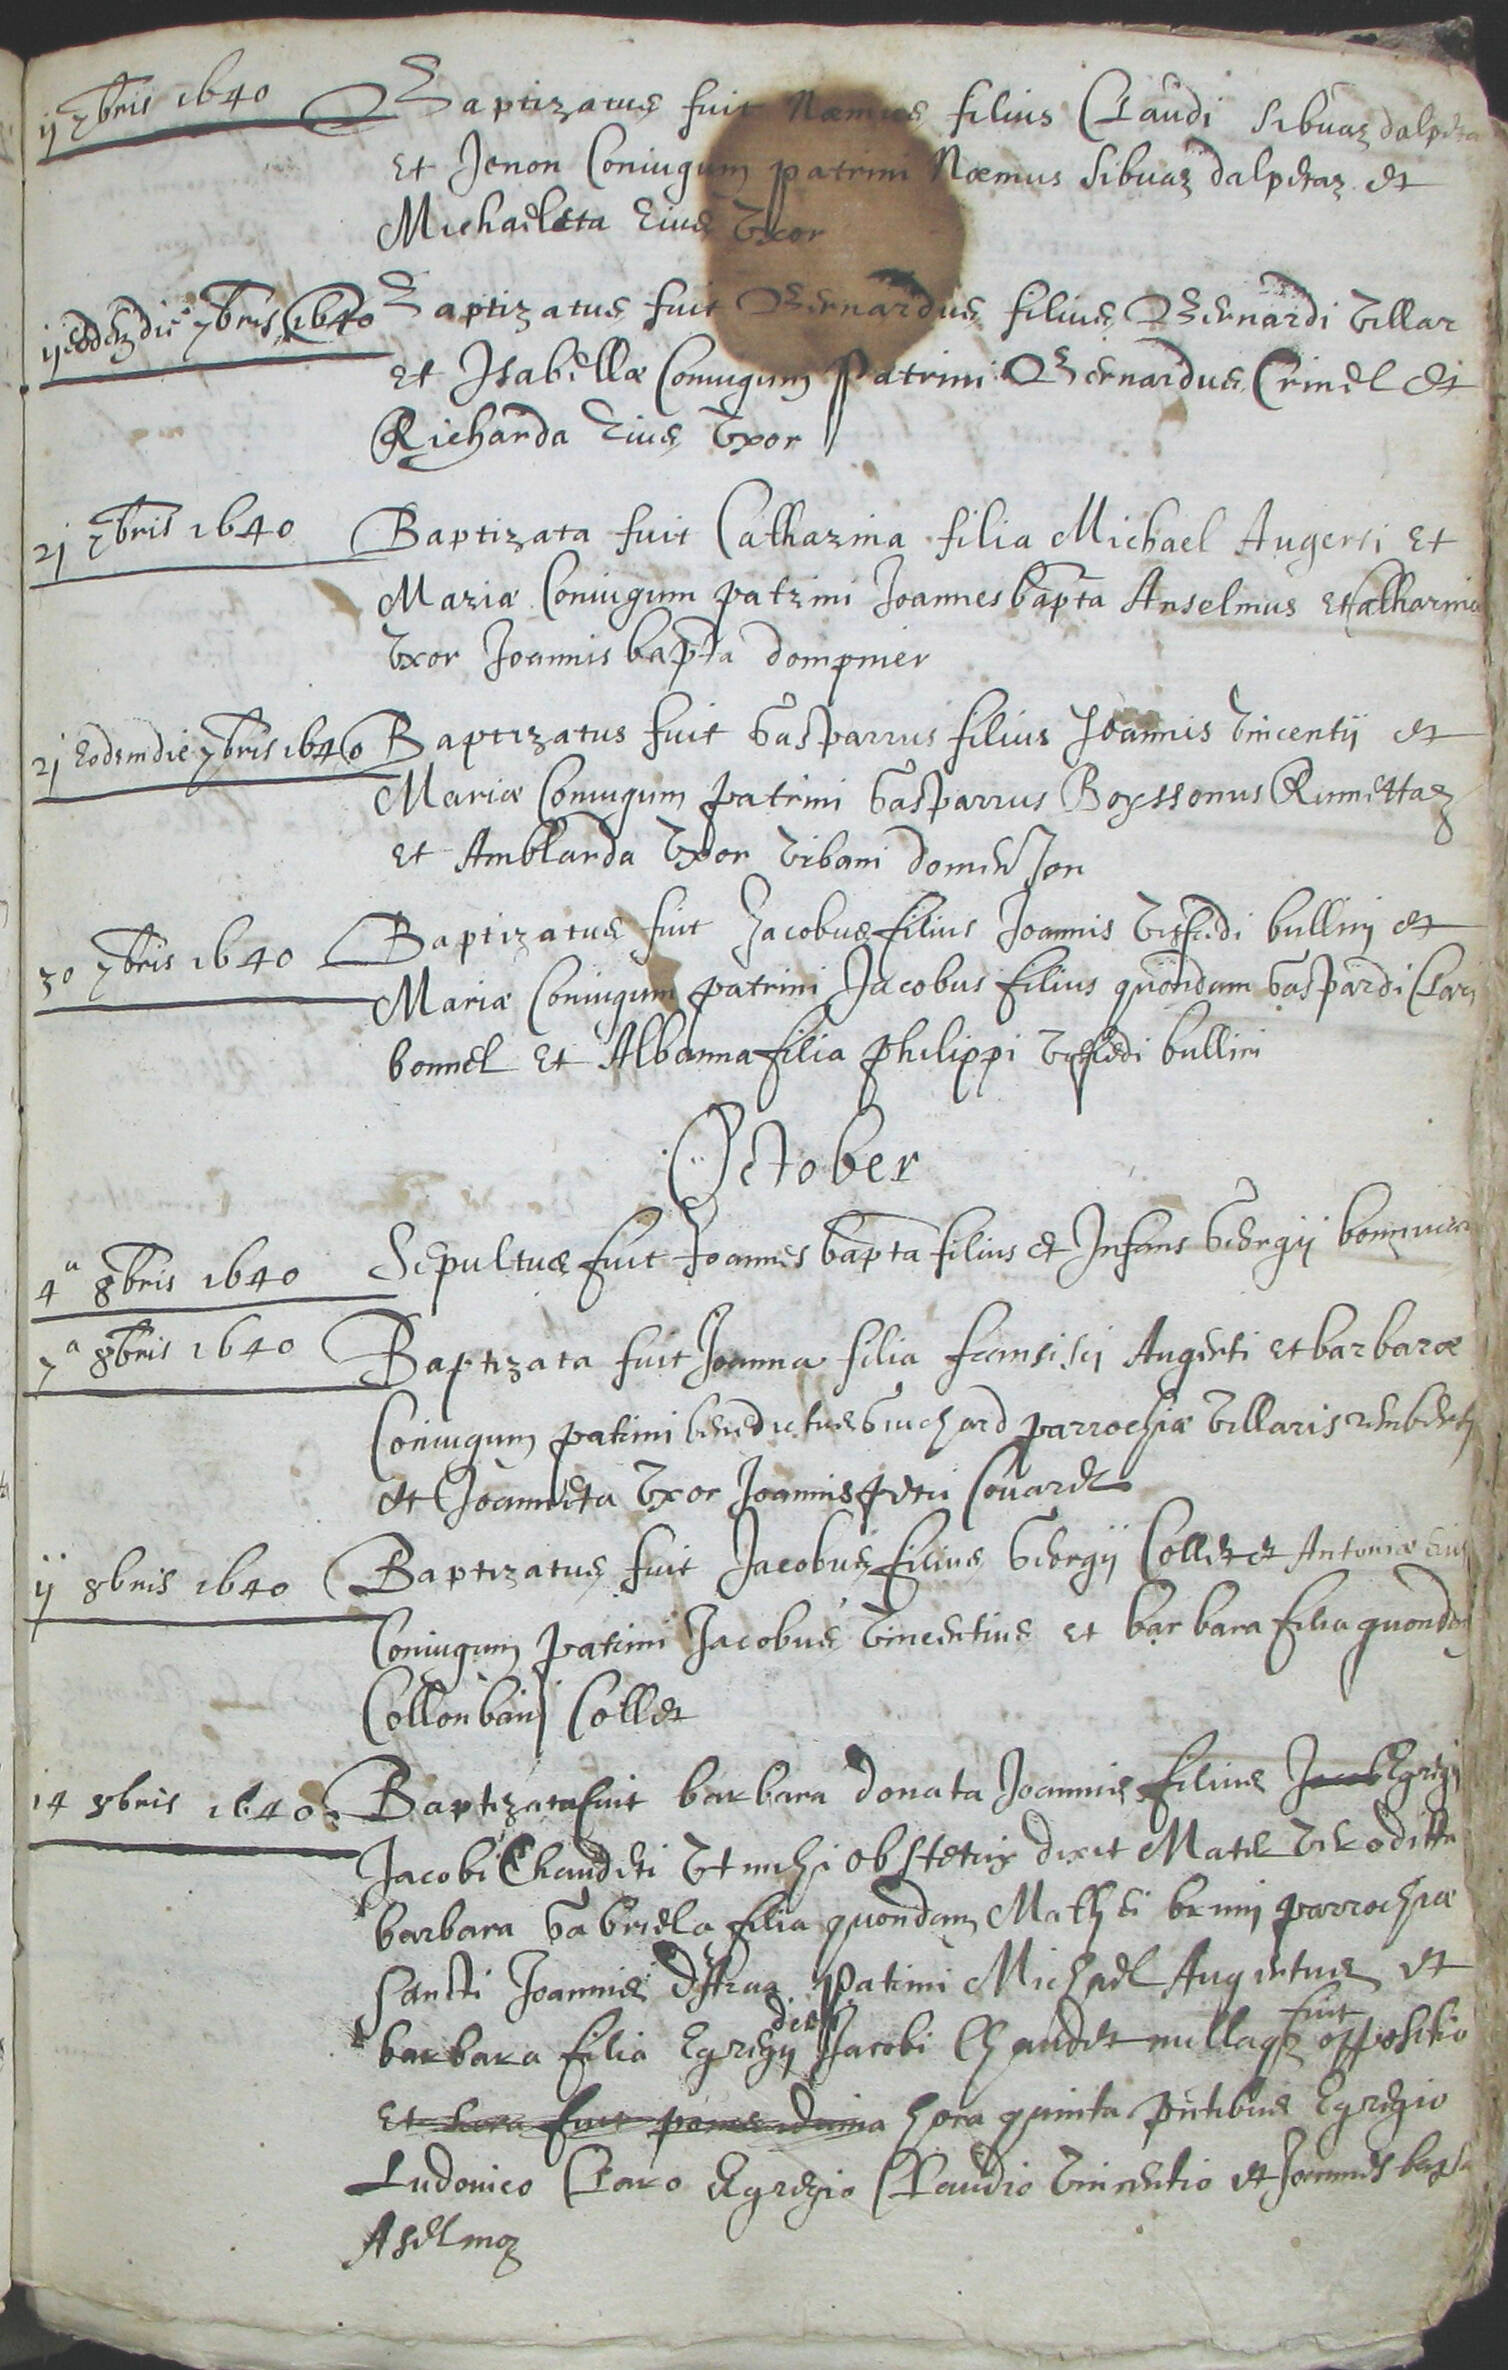 ij 7bris 1640 Baptizatus fuit Næmus filius Claudi Sibuaz dalpetaz
et Jenon Coniugum patrini Næmus Sibuaz dalpetaz et
Michaeleta Eius Vxor
ij eodem die 7bris 1640 Baptizatus fuit Bernardus filius Bernardi Villar
et Isabellæ Coniugum Patrini Bernardus Crinel et
Richarda Eius Vxor
21 7bris 1640 Baptizata fuit Catharina filia Michael Augerti Et
Mariæ Coniugum patrini Joannes bapta Anselmus et Catharina
Vxor Joannis bapta dompnier
21 Eodem die 7bris 1640 Baptizatus fuit Gasparrus filius Joannis Vincentij et
Mariæ Coniugum patrini Gasparrus Boyssonus Rumettaz
et Amblarda Vxor Vrbani
30 7bris 1640 Baptizatus fuit Jacobus filius Joannis bullin et
Mariæ Coniugum patrini Jacobus filius quondam Gaspardi Clari
bonnel Et Albanna filia philippi bullin
October
4a 8bris 1640 Sepultus fuit Joannes bapta filius et Infans Georgij
7a 8bris 1640 Baptizata fuit Joanna filia francisci Augerti et barbaræ
Coniugum patrini benedictus Guichard parrochiæ Villaris
et Joanneta Vxor Joannis petri Couardt
ij 8bris 1640 Baptizatus fuit Jacobus filius Georgij Collet et Antoniæ eius
Coniugum patrini Jacobus Vincentius et barbara filia quondam
Collonbani Collet
14 8bris 1640 Baptizata fuit barbara donata Joannis filius Jacob Egregij
Jacobi Chaudeti Vt mihi obstetrix dixit Mater Vero dittæ
barbara Gabriela filia quondam Mathei brunj parrochiæ
sancti Joannis Patrini Michael Augertus et
barbara filia Egregij dicti Jacobi Chaudet nullaqz fuit oppositio
et hora fuit hora quinta pntibus Egregio
Ludovico Claro Egregio Claudio Vincentio et Joannes bapta
Aselmoz